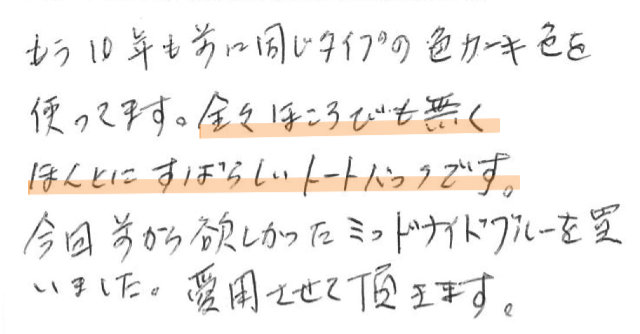 もう10年も前に同じタイプの色カーキ色を
使ってます。全々ほころびも無く
ほんとにすばらしいトートバックです。
今回前から欲しかったミッドナイトブルーを買
いました。愛用させて頂きます。